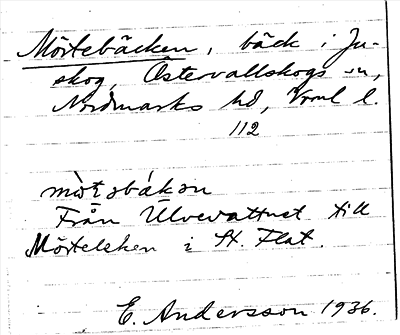 Mörtebäcken, bäck i Ju-
skog, Östervallskogs sn,
Nordmarks hd, Vrml l.
112
mòṭsbákọn
Från Ulvevattnet till
Mörtelsken i St. Flat.
E. Andersson 1936.